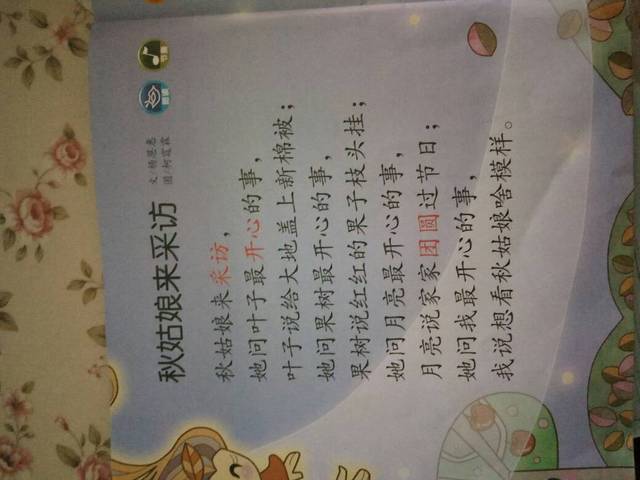 秋姑娘来采访
文/杨恩惠
图/柯霓霖
秋姑娘来采访，
她问叶子最开心的事，
叶子说给大地盖上新棉被；
她问果树最开心的事，
果树说红红的果子枝头挂；
她问月亮最开心的事，
月亮说家家团圆过节日；
她问我最开心的事，
我说想看秋姑娘啥模样。